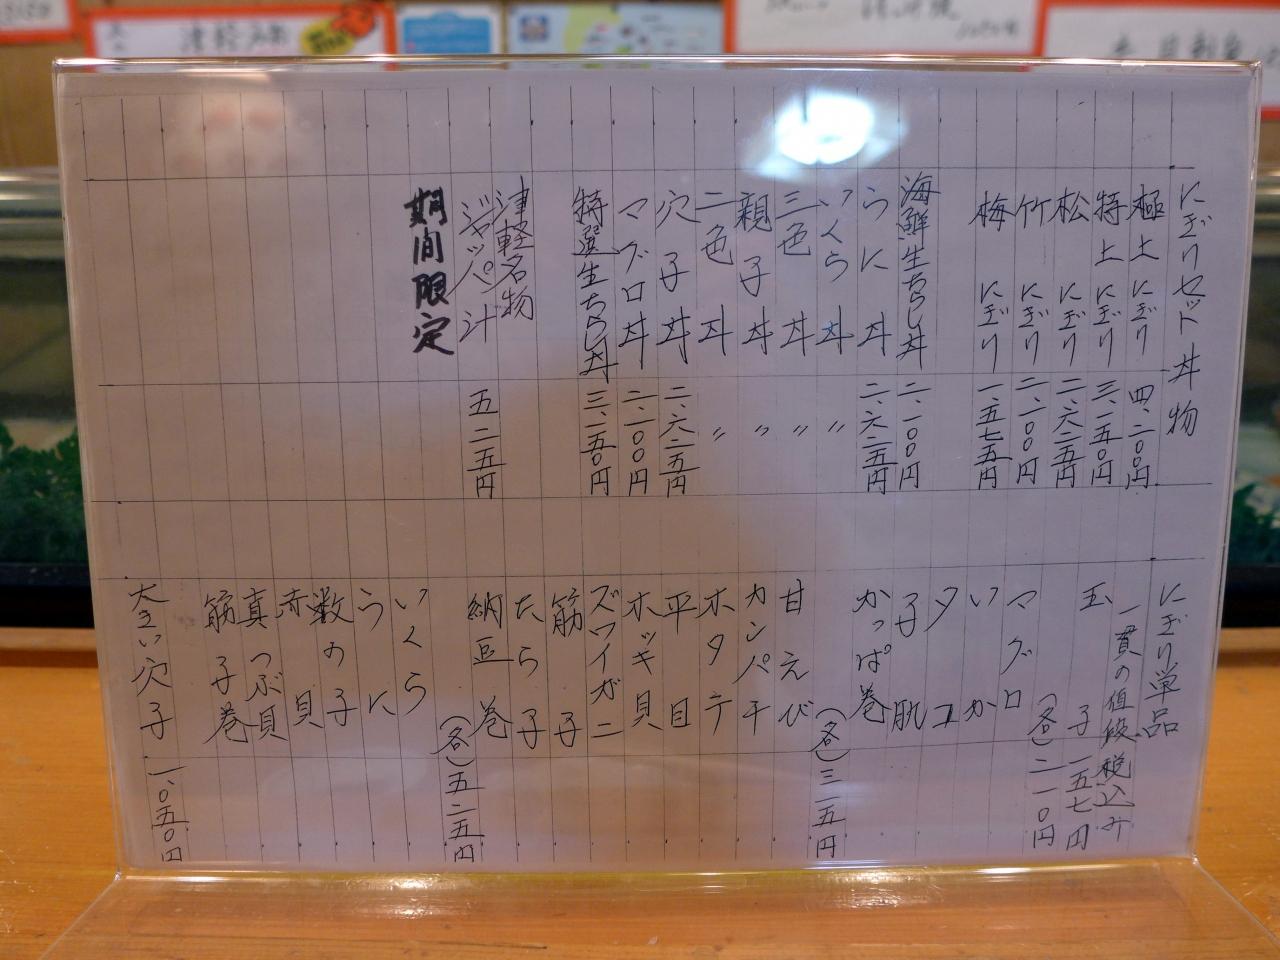 にぎりセット 丼物
極上 にぎり 四、二〇〇円
特上 にぎり 三、一五〇円
松 にぎり 二、六二五円
竹 にぎり 二、一〇〇円
梅 にぎり 一、五七五円
海鮮生ちらし丼 二、一〇〇円
うに 丼 二、六二五円
いくら 丼 〃
三色 丼 〃
親子 丼 〃
二色 丼 〃
穴子 丼 二、六二五円
マグロ丼 二、一〇〇円
特選生ちらし丼 三、一五〇円
津軽名物
ジャッパ汁 五二五円
期間限定
にぎり単品
一貫の値段税込み
玉子 一五七円
マグロ
いか
タコ
子肌
かっぱ巻
(各)二一〇円
甘えび
カンパチ
ホタテ
平目
ホッキ貝
ズワイガニ
筋子
たら子
納豆巻
(各)三一五円
いくら
うに
数の子
赤貝
真つぶ貝
筋子巻
(各)五二五円
大きい穴子 一、〇五〇円